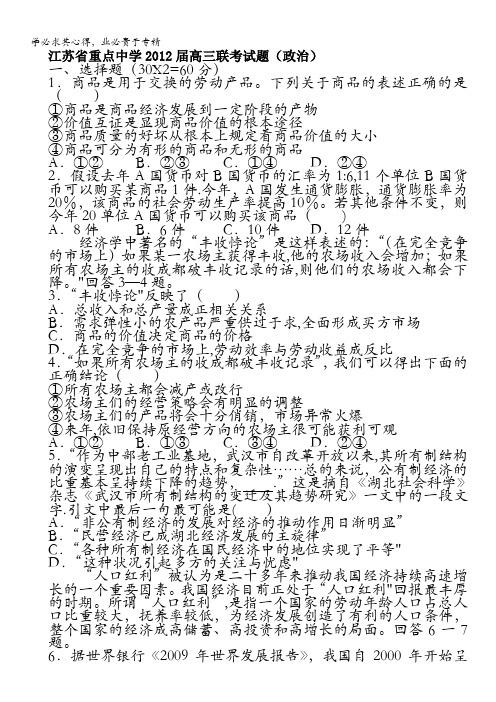 学必求其心得，业必贵于专精
江苏省重点中学2012届高三联考试题（政治）
一、选择题（30X2=60分）
1．商品是用于交换的劳动产品。下列关于商品的表述正确的是
（　　）
①商品是商品经济发展到一定阶段的产物
②价值互证是显现商品价值的根本途径
③商品质量的好坏从根本上规定着商品价值的大小
④商品可分为有形的商品和无形的商品
A．①② B．②③ C．①④ D．②④
2．假设去年A国货币对B国货币的汇率为1:6,11个单位B国货
币可以购买某商品1件.今年，A国发生通货膨胀，通货膨胀率为
20％，该商品的社会劳动生产率提高10％。若其他条件不变，则
今年20单位A国货币可以购买该商品（　　）
A．8件 B．6件 C．10件 D．12件
经济学中著名的“丰收悖论”是这样表述的：“（在完全竞争
的市场上）如果某一农场主获得丰收,他的农场收入会增加；如果
所有农场主的收成都破丰收记录的话,则他们的农场收入都会下
降。"回答3—4题。
3．“丰收悖论"反映了（　　）
A．总收入和总产量成正相关关系
B．需求弹性小的农产品严重供过于求,全面形成买方市场
C．商品的价值决定商品的价格
D．在完全竞争的市场上,劳动效率与劳动收益成反比
4．“如果所有农场主的收成都破丰收记录”，我们可以得出下面的
正确结论（　　）
①所有农场主都会减产或改行
②农场主们的经营策略会有明显的调整
③农场主们的产品将会十分俏销，市场异常火爆
④来年,依旧保持原经营方向的农场主很可能获利可观
A．①② B．①③ C．③④ D．②④
5．“作为中部老工业基地，武汉市自改革开放以来,其所有制结构
的演变呈现出自己的特点和复杂性……总的来说，公有制经济的
比重基本呈持续下降的趋势，____” 这是摘自《湖北社会科学》
杂志《武汉市所有制结构的变迁及其趋势研究》一文中的一段文
字.引文中最后一句最可能是(　　)
A．“非公有制经济的发展对经济的推动作用日渐明显”
B．“民营经济已成湖北经济发展的主旋律”
C．“各种所有制经济在国民经济中的地位实现了平等"
D．“这种状况引起多方的关注与忧虑"
“人口红利”被认为是二十多年来推动我国经济持续高速增
长的一个重要因素。我国经济目前正处于“人口红利"回报最丰厚
的时期。所谓“人口红利”,是指一个国家的劳动年龄人口占总人
口比重较大，抚养率较低，为经济发展创造了有利的人口条件，
整个国家的经济成高储蓄、高投资和高增长的局面。回答6一7
题。
6．据世界银行《2009年世界发展报告》，我国自2000年开始呈